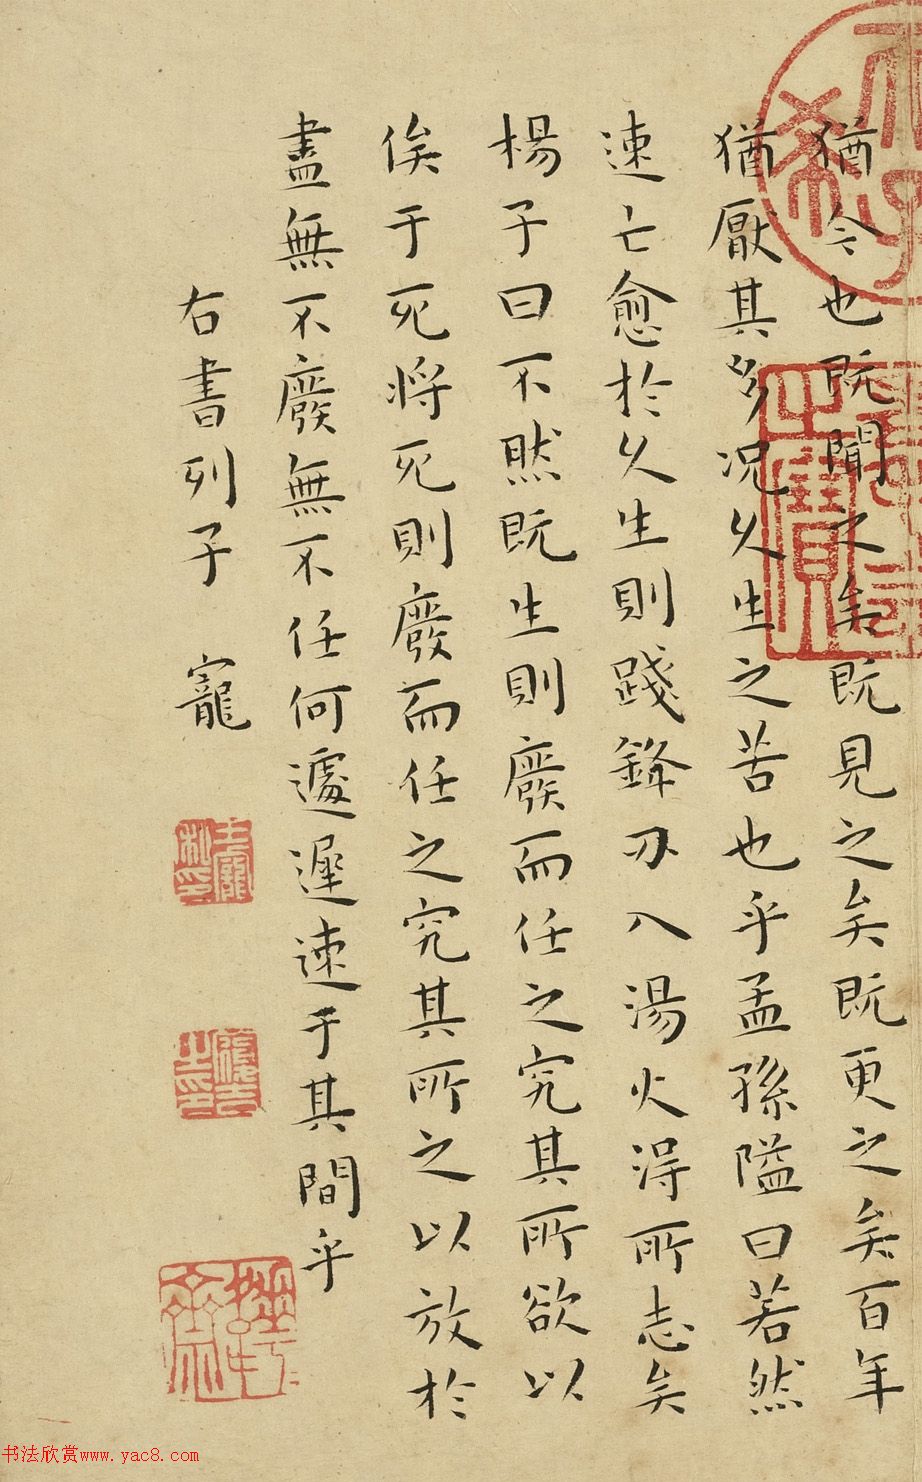 猶今也既聞之矣既見之矣既更之矣百年
猶厭其多况久生之苦也乎孟孫隘曰若然
速亡愈於久生則踐鋒刃入湯火得所志矣
楊子曰不然既生則廢而任之究其所欲以
俟于死将死則廢而任之究其所之以放於
盡無不廢無不任何遽遲速于其間乎
右書列子　寵
王寵私印
履吉之印
书法欣赏www.yac8.com